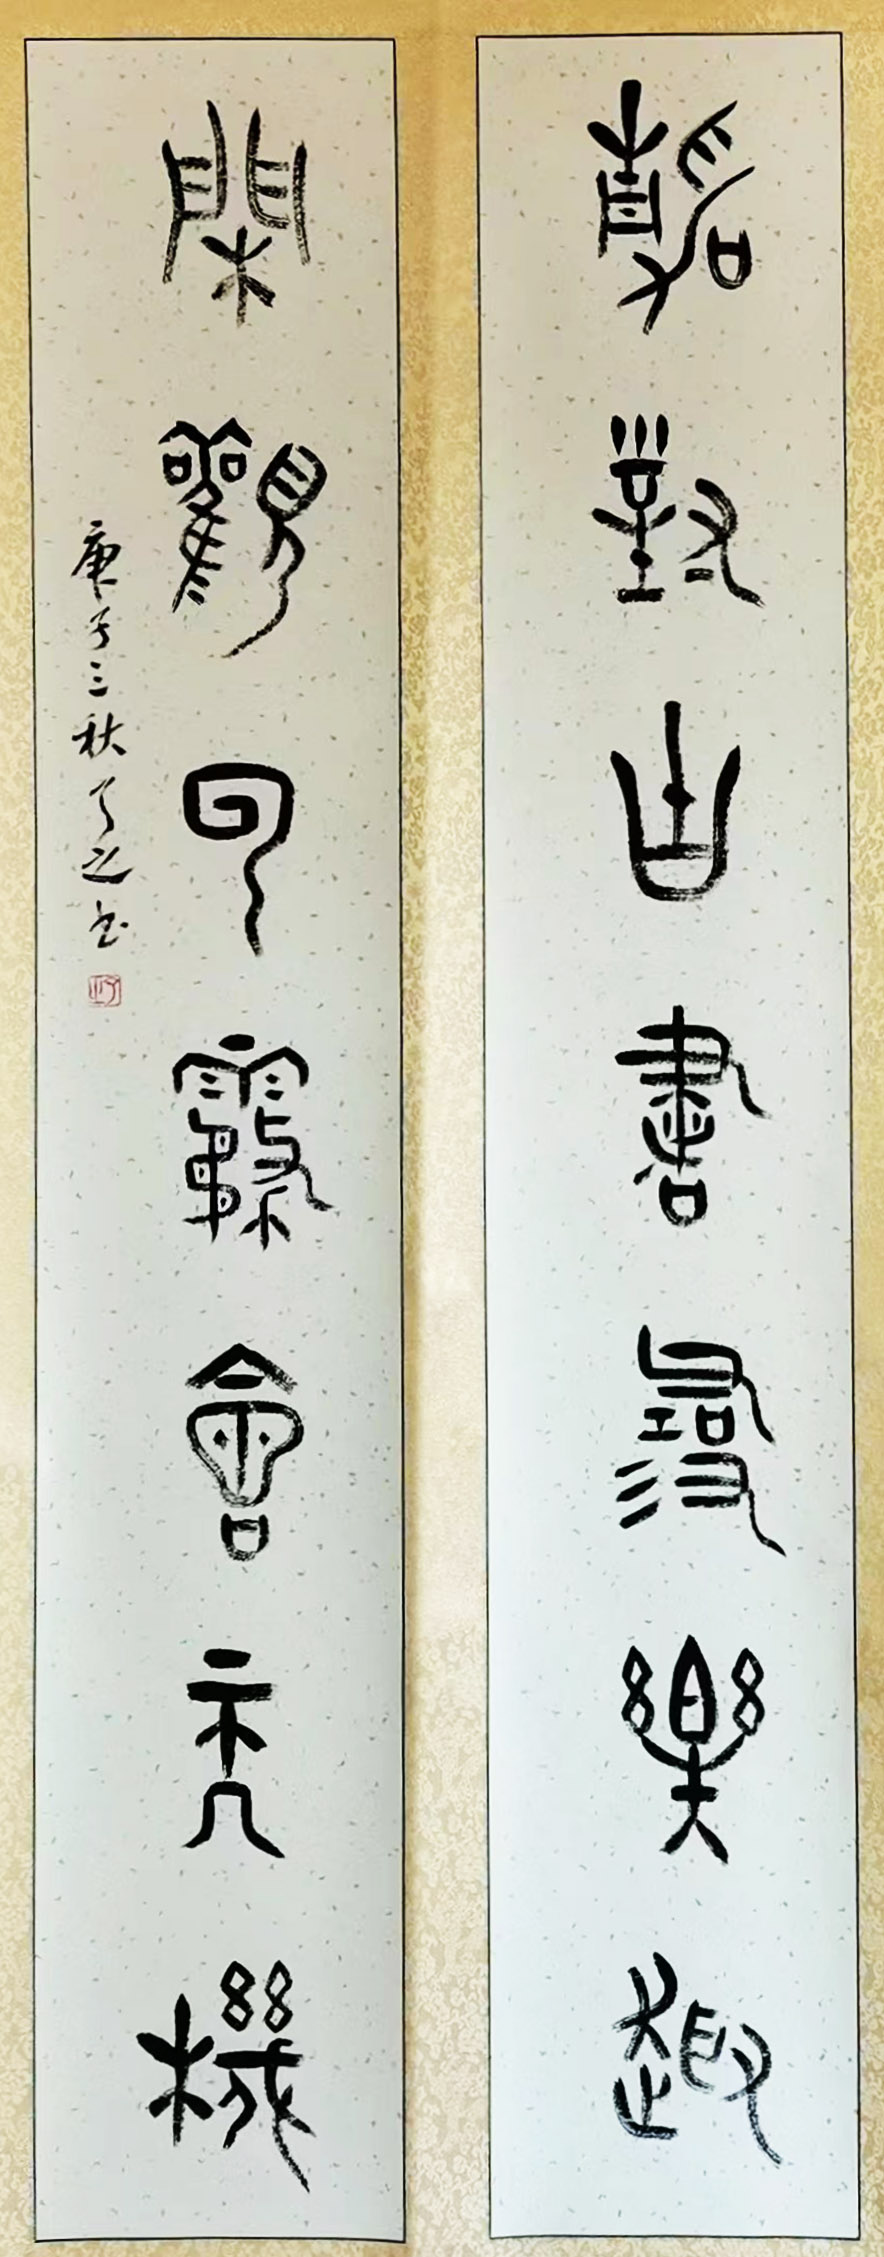 靜對古書尋樂趣
閑觀雲霧會天機
庚子三秋了之書